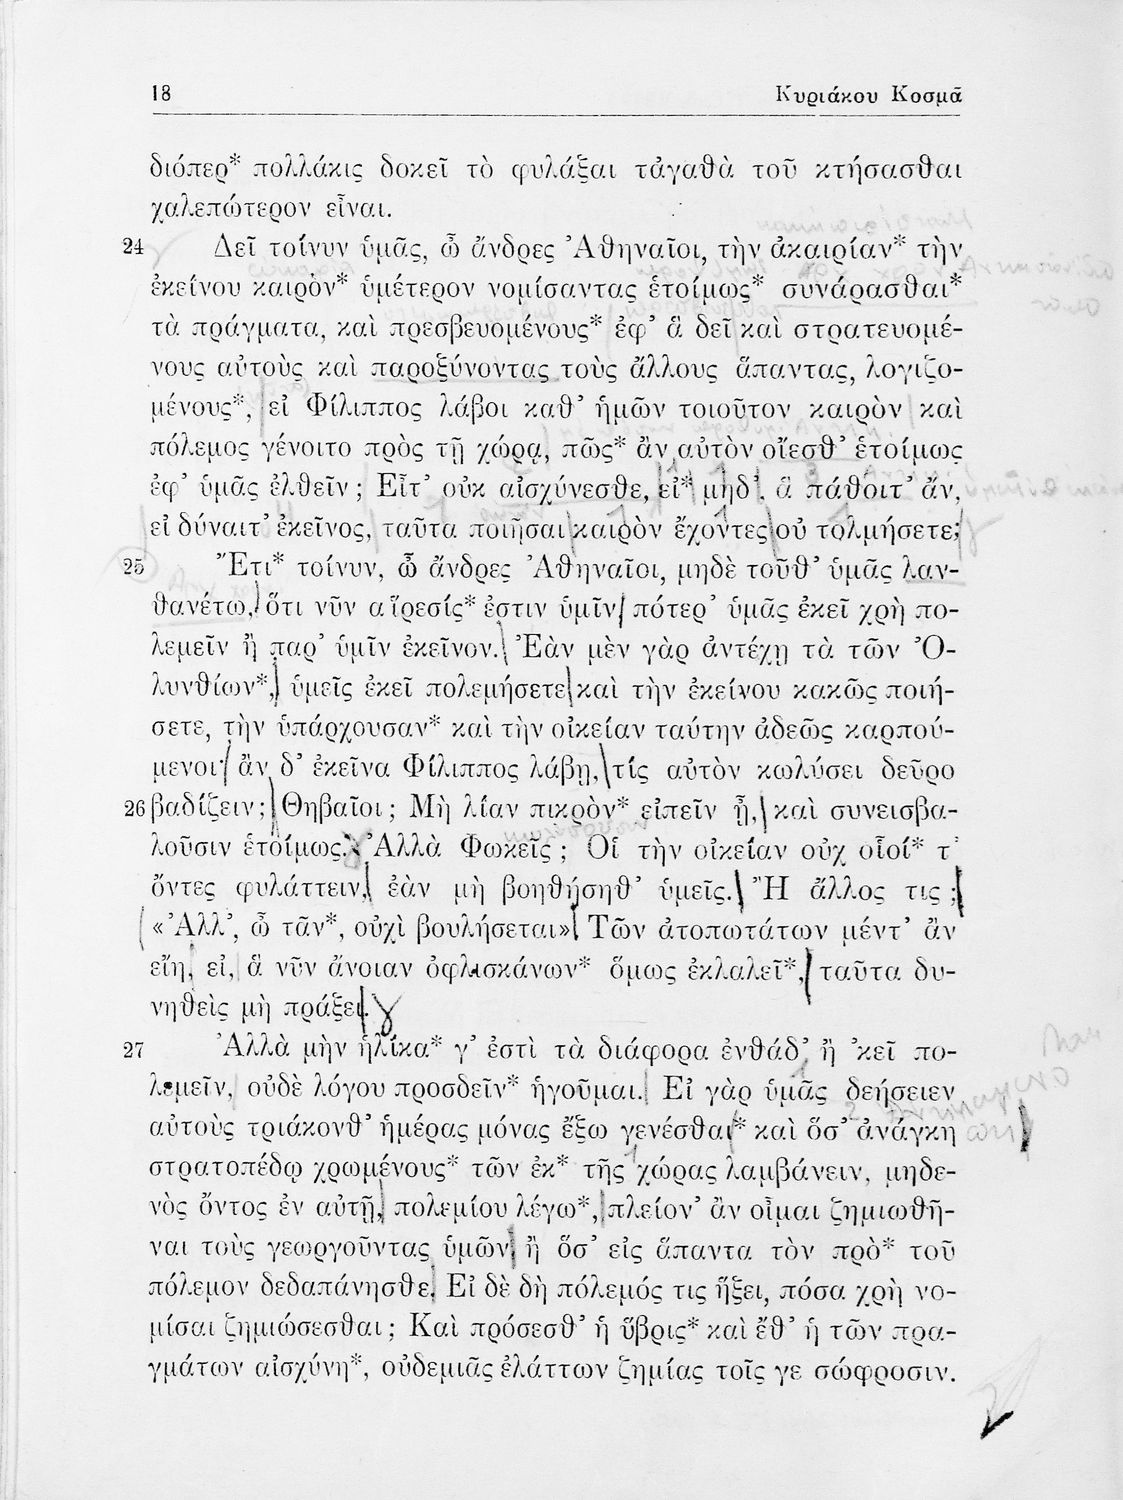 18 Κυριάκου Κοσμᾶ
διόπερ* πολλάκις δοκεῖ τὸ φυλάξαι τἀγαθὰ τοῦ κτήσασθαι
χαλεπώτερον εἶναι.
24 Δεῖ τοίνυν ὑμᾶς, ὦ ἄνδρες Ἀθηναῖοι, τὴν ἀκαιρίαν* τὴν
ἐκείνου καιρὸν* ὑμέτερον νομίσαντας ἑτοίμως* συνάρασθαι*
τὰ πράγματα, καὶ πρεσβευομένους* ἐφ’ ἃ δεῖ καὶ στρατευομέ-
νους αὐτοὺς καὶ παροξύνοντας τοὺς ἄλλους ἅπαντας, λογιζο-
μένους*, εἰ Φίλιππος λάβοι καθ’ ἡμῶν τοιοῦτον καιρὸν καὶ
πόλεμος γένοιτο πρὸς τῇ χώρᾳ, πῶς* ἂν αὐτὸν οἴεσθ’ ἑτοίμως
ἐφ’ ὑμᾶς ἐλθεῖν; Εἶτ’ οὐκ αἰσχύνεσθε, εἰ* μηδ’, ἃ πάθοιτ’ ἄν,
εἰ δύναιτ’ ἐκεῖνος, ταῦτα ποιῆσαι καιρὸν ἔχοντες οὐ τολμήσετε;
25 Ἔτι* τοίνυν, ὦ ἄνδρες Ἀθηναῖοι, μηδὲ τοῦθ’ ὑμᾶς λαν-
θανέτω, ὅτι νῦν αἵρεσίς* ἐστιν ὑμῖν, πότερ’ ὑμᾶς ἐκεῖ χρὴ πο-
λεμεῖν ἢ παρ’ ὑμῖν ἐκεῖνον. Ἐὰν μὲν γὰρ ἀντέχῃ τὰ τῶν Ὀ-
λυνθίων*, ὑμεῖς ἐκεῖ πολεμήσετε καὶ τὴν ἐκείνου κακῶς ποιή-
σετε, τὴν ὑπάρχουσαν* καὶ τὴν οἰκείαν ταύτην ἀδεῶς καρπού-
μενοι· ἂν δ’ ἐκεῖνα Φίλιππος λάβῃ, τίς αὐτὸν κωλύσει δεῦρο
26 βαδίζειν; Θηβαῖοι; Μὴ λίαν πικρὸν* εἰπεῖν ᾖ, καὶ συνεισβα-
λοῦσιν ἑτοίμως. Ἀλλὰ Φωκεῖς; Οἱ τὴν οἰκείαν οὐχ οἷοί* τ’
ὄντες φυλάττειν, ἐὰν μὴ βοηθήσηθ’ ὑμεῖς. Ἢ ἄλλος τις;
«Ἀλλ’, ὦ τᾶν*, οὐχὶ βουλήσεται». Τῶν ἀτοπωτάτων μέντ’ ἂν
εἴη, εἰ, ἃ νῦν ἄνοιαν ὀφλισκάνων* ὅμως ἐκλαλεῖ*, ταῦτα δυ-
νηθεὶς μὴ πράξει.
27 Ἀλλὰ μὴν ἡλίκα* γ’ ἐστὶ τὰ διάφορα ἐνθάδ’ ἢ ’κεῖ πο-
λεμεῖν, οὐδὲ λόγου προσδεῖν* ἡγοῦμαι. Εἰ γὰρ ὑμᾶς δεήσειεν
αὐτοὺς τριάκονθ’ ἡμέρας μόνας ἔξω γενέσθαι* καὶ ὅσ’ ἀνάγκη
στρατοπέδῳ χρωμένους* τῶν ἐκ* τῆς χώρας λαμβάνειν, μηδε-
νὸς ὄντος ἐν αὐτῇ, πολεμίου λέγω*, πλείον’ ἂν οἶμαι ζημιωθῆ-
ναι τοὺς γεωργοῦντας ὑμῶν, ἢ ὅσ’ εἰς ἅπαντα τὸν πρὸ* τοῦ
πόλεμον δεδαπάνησθε. Εἰ δὲ δὴ πόλεμός τις ἥξει, πόσα χρὴ νο-
μίσαι ζημιώσεσθαι; Καὶ πρόσεσθ’ ἡ ὕβρις* καὶ ἔθ’ ἡ τῶν πρα-
γμάτων αἰσχύνη*, οὐδεμιᾶς ἐλάττων ζημίας τοῖς γε σώφροσιν.